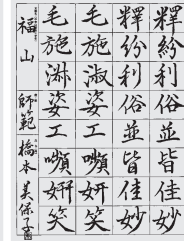 釋紛利俗並皆佳妙
釋紛利俗並皆佳妙
毛施淑姿工嚬妍笑
毛施淑姿工嚬妍笑
福山 師範 橋本美保子